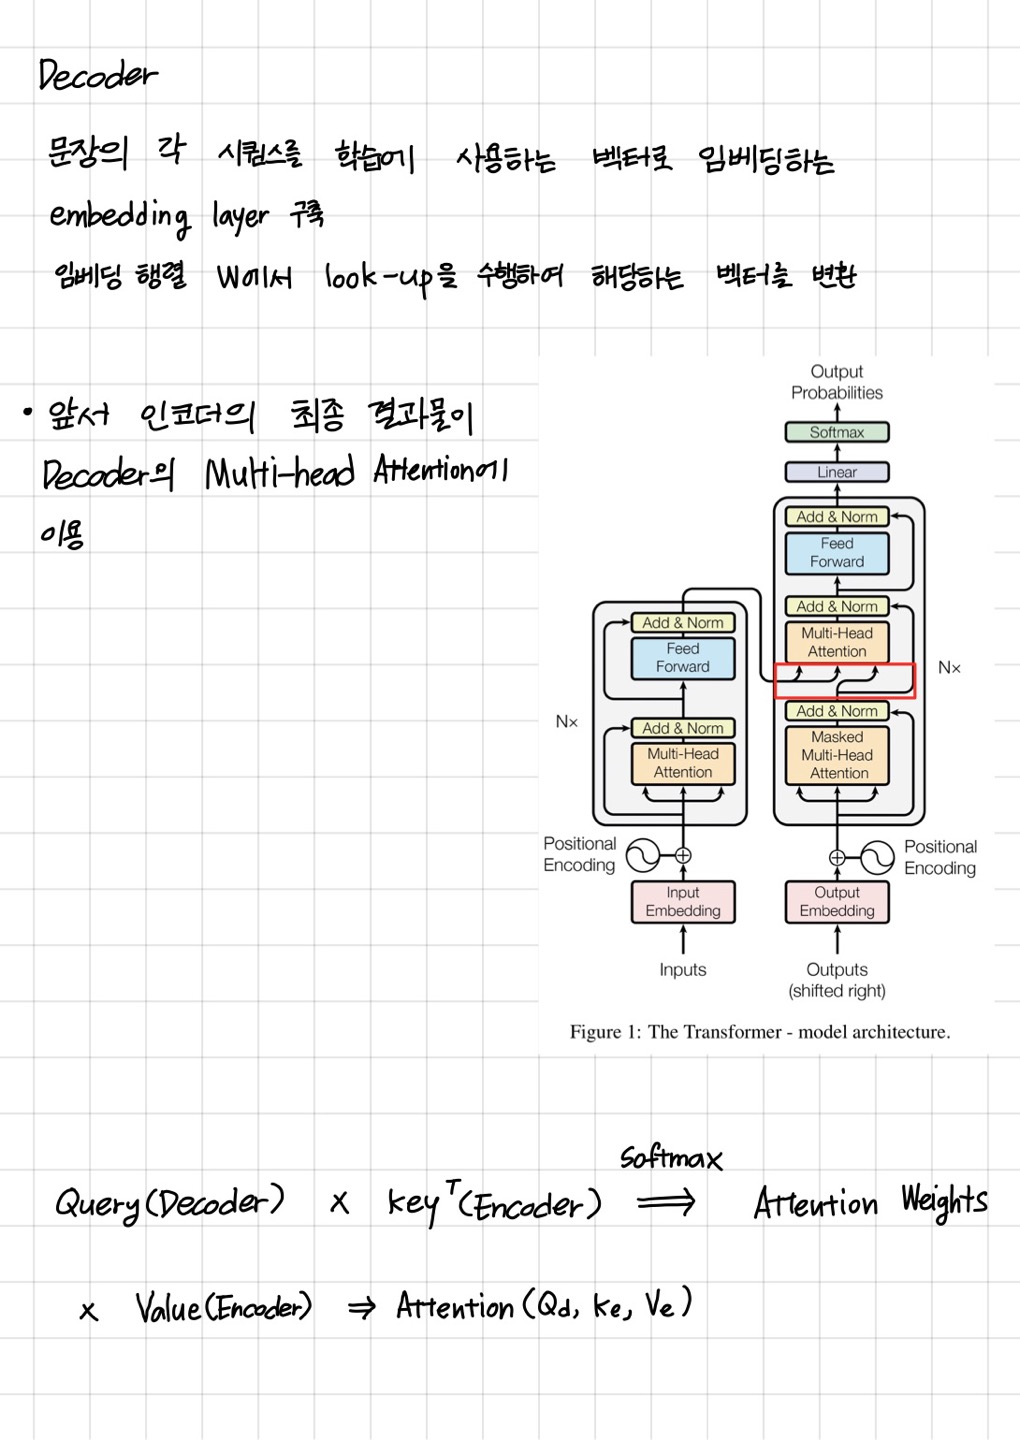 Decoder
문장의 각 시퀀스를 학습에 사용하는 벡터로 임베딩하는
embedding layer 구축
임베딩 행렬 W에서 look-up을 수행하여 해당하는 벡터를 변환
• 앞서 인코더의 최종 결과물이
Decoder의 Multi-head Attention에
이용
Output
Probabilities
Softmax
Linear
Add & Norm
Feed
Forward
Add & Norm
Multi-Head
Attention
Nx
Add & Norm
Masked
Multi-Head
Attention
Add & Norm
Feed
Forward
Nx
Add & Norm
Multi-Head
Attention
Positional
Encoding
Positional
Encoding
Input
Embedding
Output
Embedding
Inputs
Outputs
(shifted right)
Figure 1: The Transformer - model architecture.
Softmax
Query(Decoder) x keyᵀ(Encoder) ⟹ Attention Weights
x Value(Encoder) ⇒ Attention(Qd, ke, Ve)